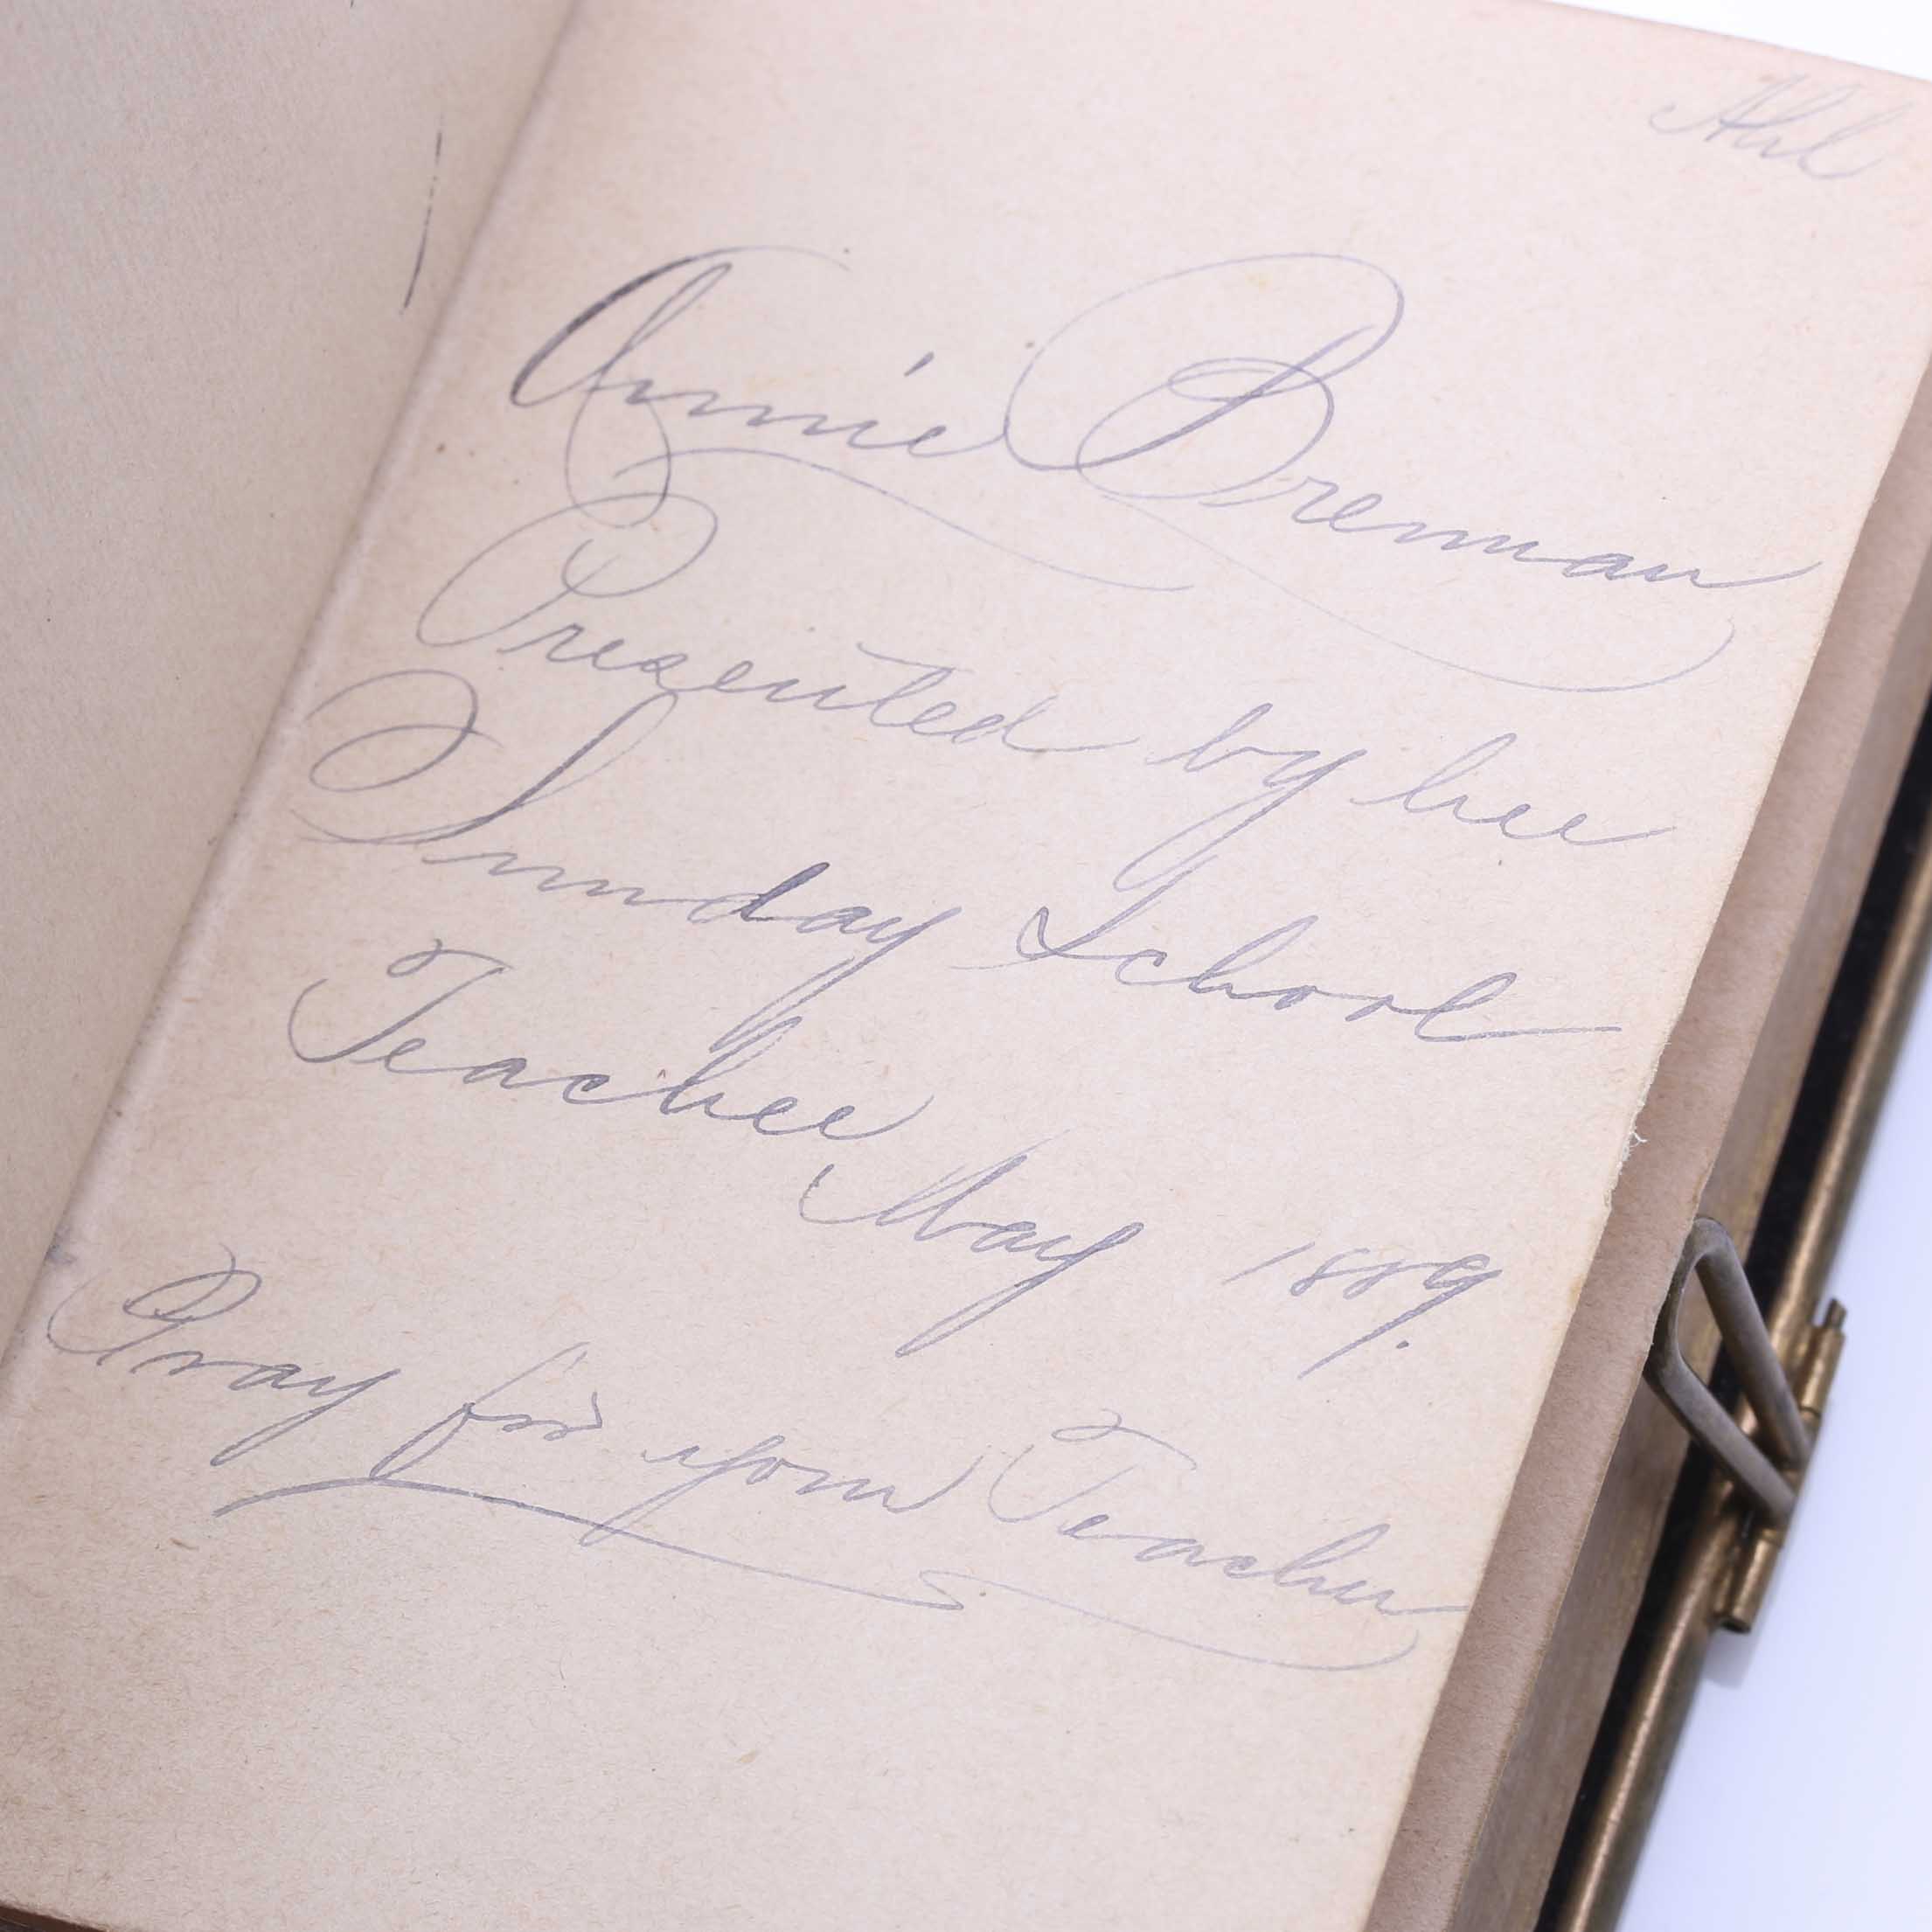 Annie Brennan
Presented by her
Sunday School
Teacher May 1889.
Pray for your Teacher